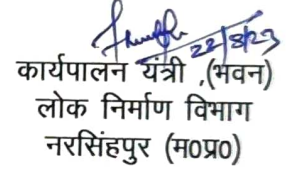 22/8/23
कार्यपालन यंत्री (भवन)
लोक निर्माण विभाग
नरसिंहपुर (म0प्र0)